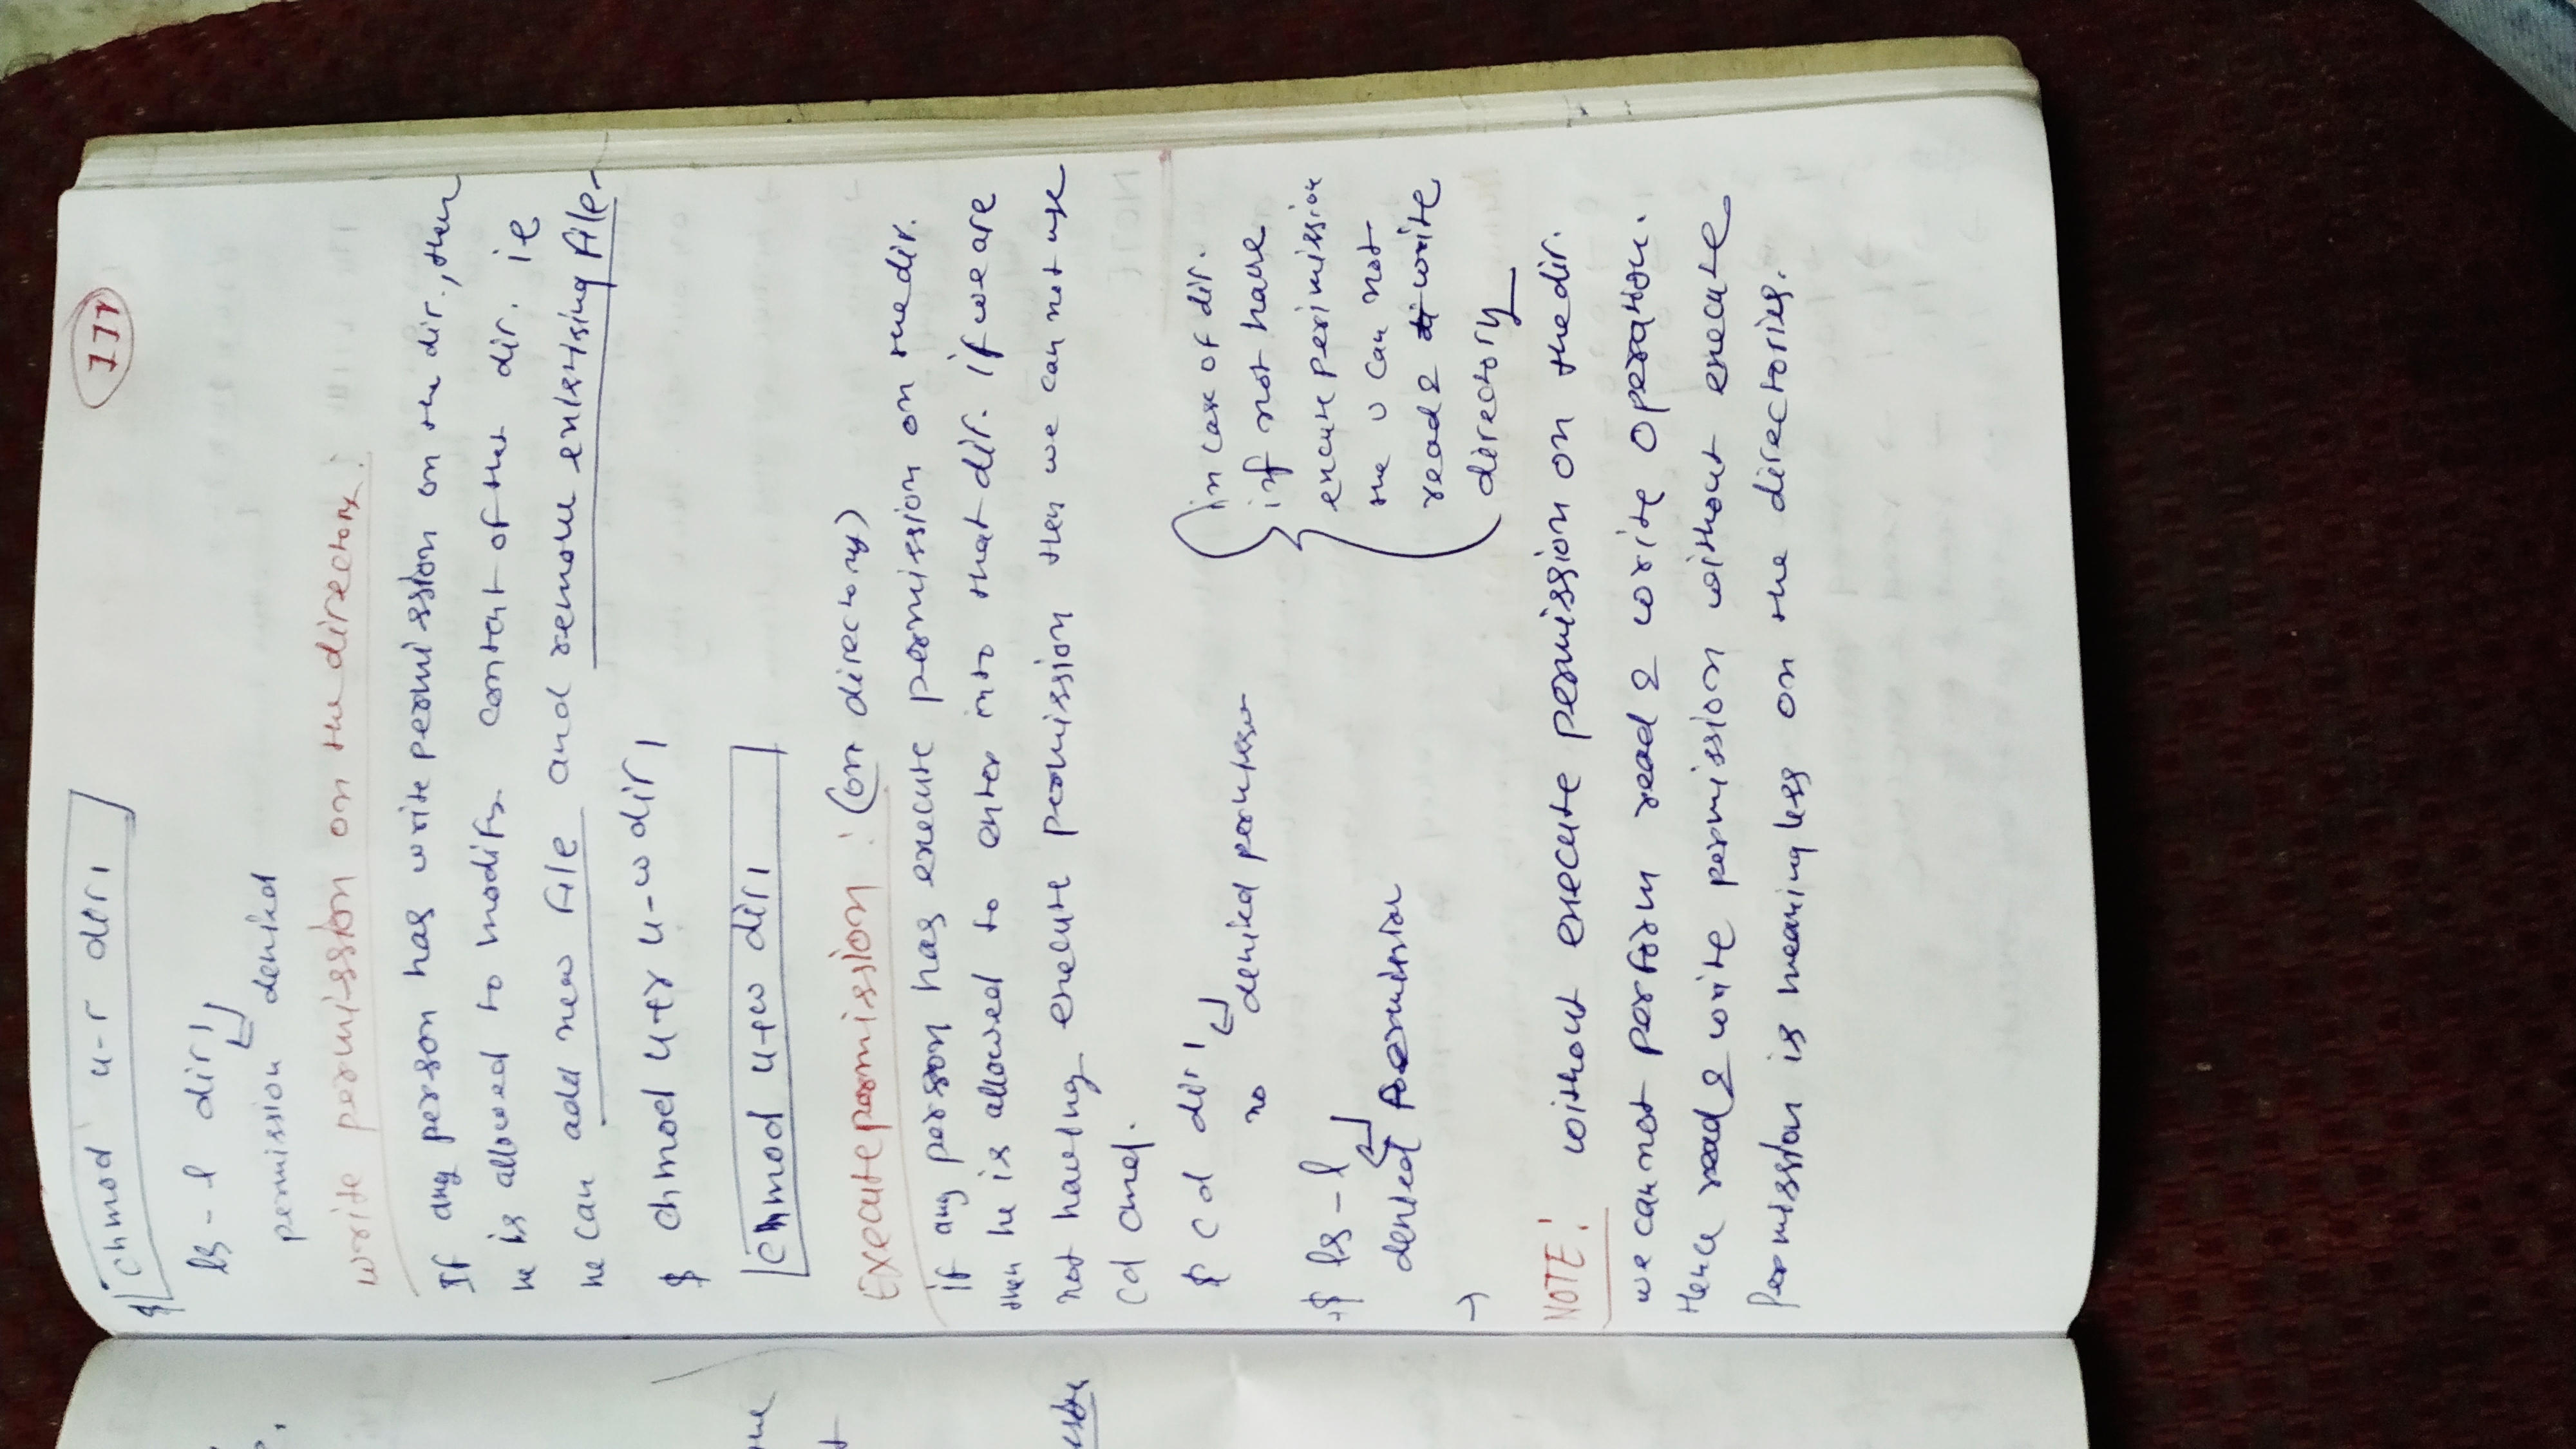 111
$ chmod u-r dir1
ls -l dir1 ↵
permission denied
write permission on the directory:
If any person has write permission on the dir., then
he is allowed to modify content of that dir. ie
he can add new file and remove existising file.
$ chmod u+r u-w dir1
chmod u+w dir1
Execute permission : (on directory)
if any person has execute permission on the dir.
then he is allowed to enter into that dir. if we are
not having execute permission then we can not use
cd
$ cd dir1 ↵
no denied
$ ls -l ↵
denied Permission
→
in case of dir.
if not have
perimission
the U can not
read & write
directory
NOTE! without execute permission on the dir.
we can not perform read & write operation.
Hence read & write permission without execute
Permission is meaningless on the directories.